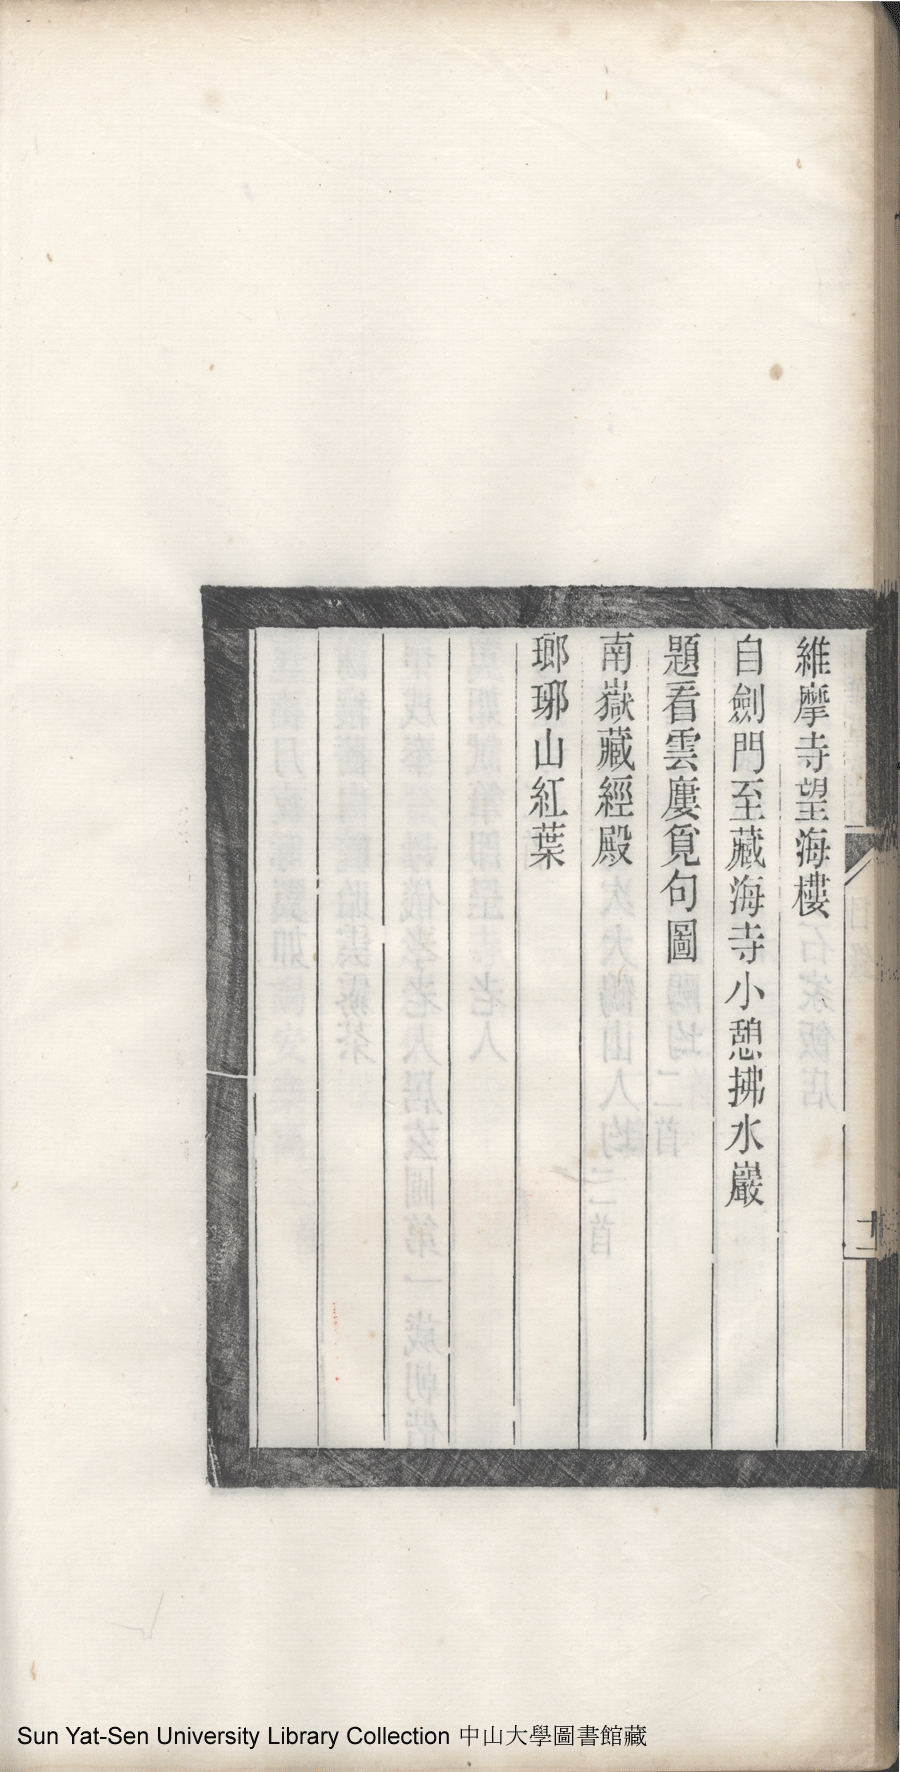 維摩寺望海樓
自劍門至藏海寺小憩拂水巖
題看雲廔覓句圖
南嶽藏經殿
瑯琊山紅葉
十二
Sun Yat-Sen University Library Collection 中山大學圖書館藏